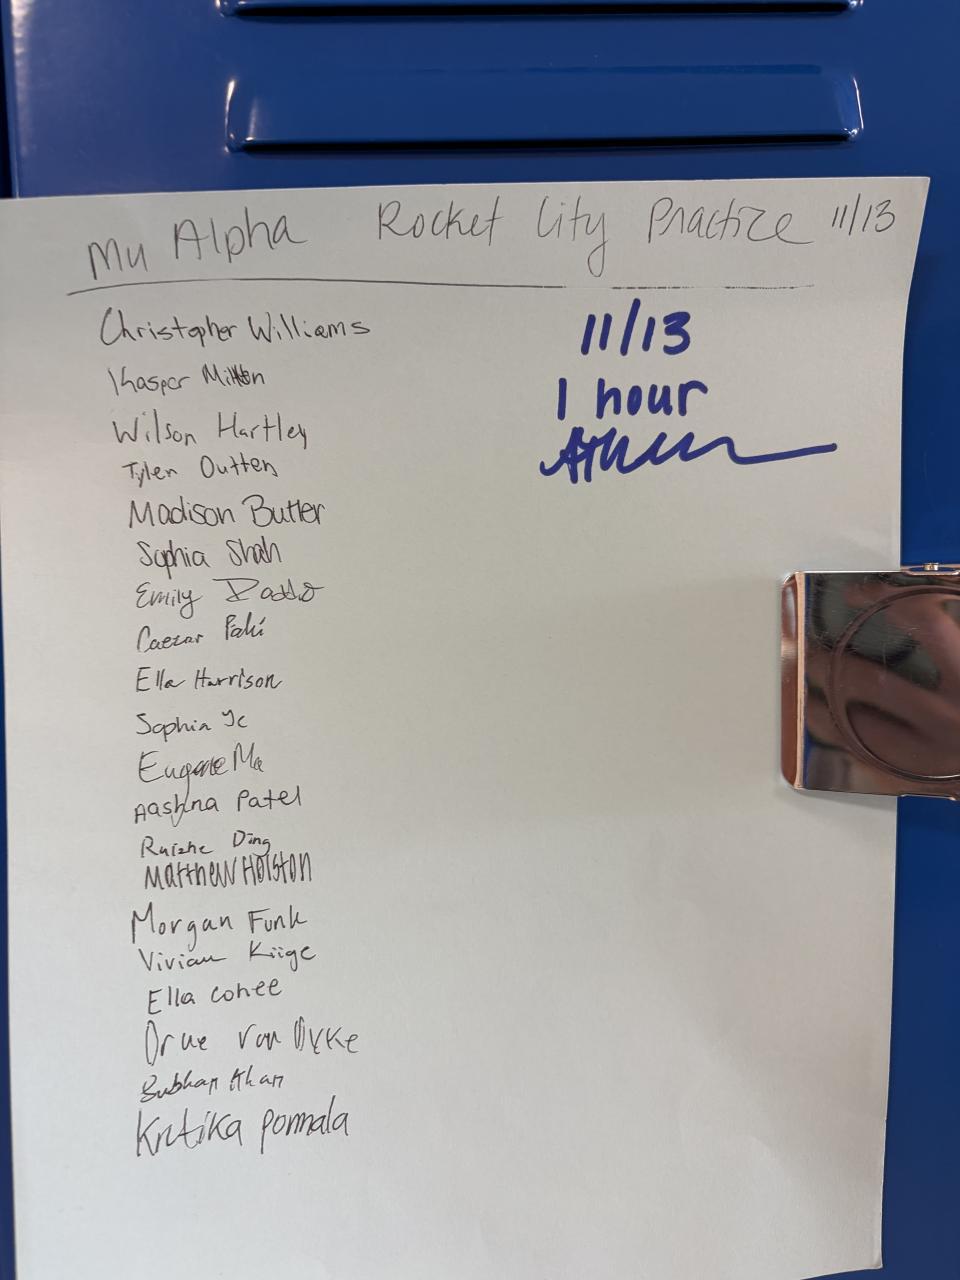 Mu Alpha Rocket City Practice 11/13
11/13
1 hour
Christopher Williams
Kasper Milton
Wilson Hartley
Tyler Outten
Madison Butler
Sophia Shah
Emily
Caezar
Ella Harrison
Sophia Ye
Eugene Ma
Aashna Patel
Ruizhe Ding
Matthew Holston
Morgan Funk
Vivian Kiige
Ella Cohee
Drue Van Dyke
Subhan Khan
Kritika Ponnala